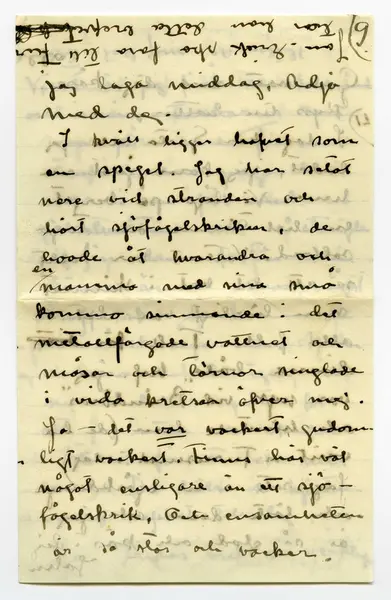 jag laga middag. Adjö
med dej.
I kväll ligger hafvet som
en spegel. Jag har setat
nere vid stranden och
hört sjöfågelskriken, de
hoade åt hvarandra och
en mamma med sina små
kommo simmande i det
metallfärgade vattnet och
måsar och tärnor singlade
i vida kretsar öfver mej.
Ja – det var vackert, gudom-
ligt vackert. Finns här väl
något ensligare än ett sjö-
fågelskrik. Och ensamheten
är så stor och vacker.